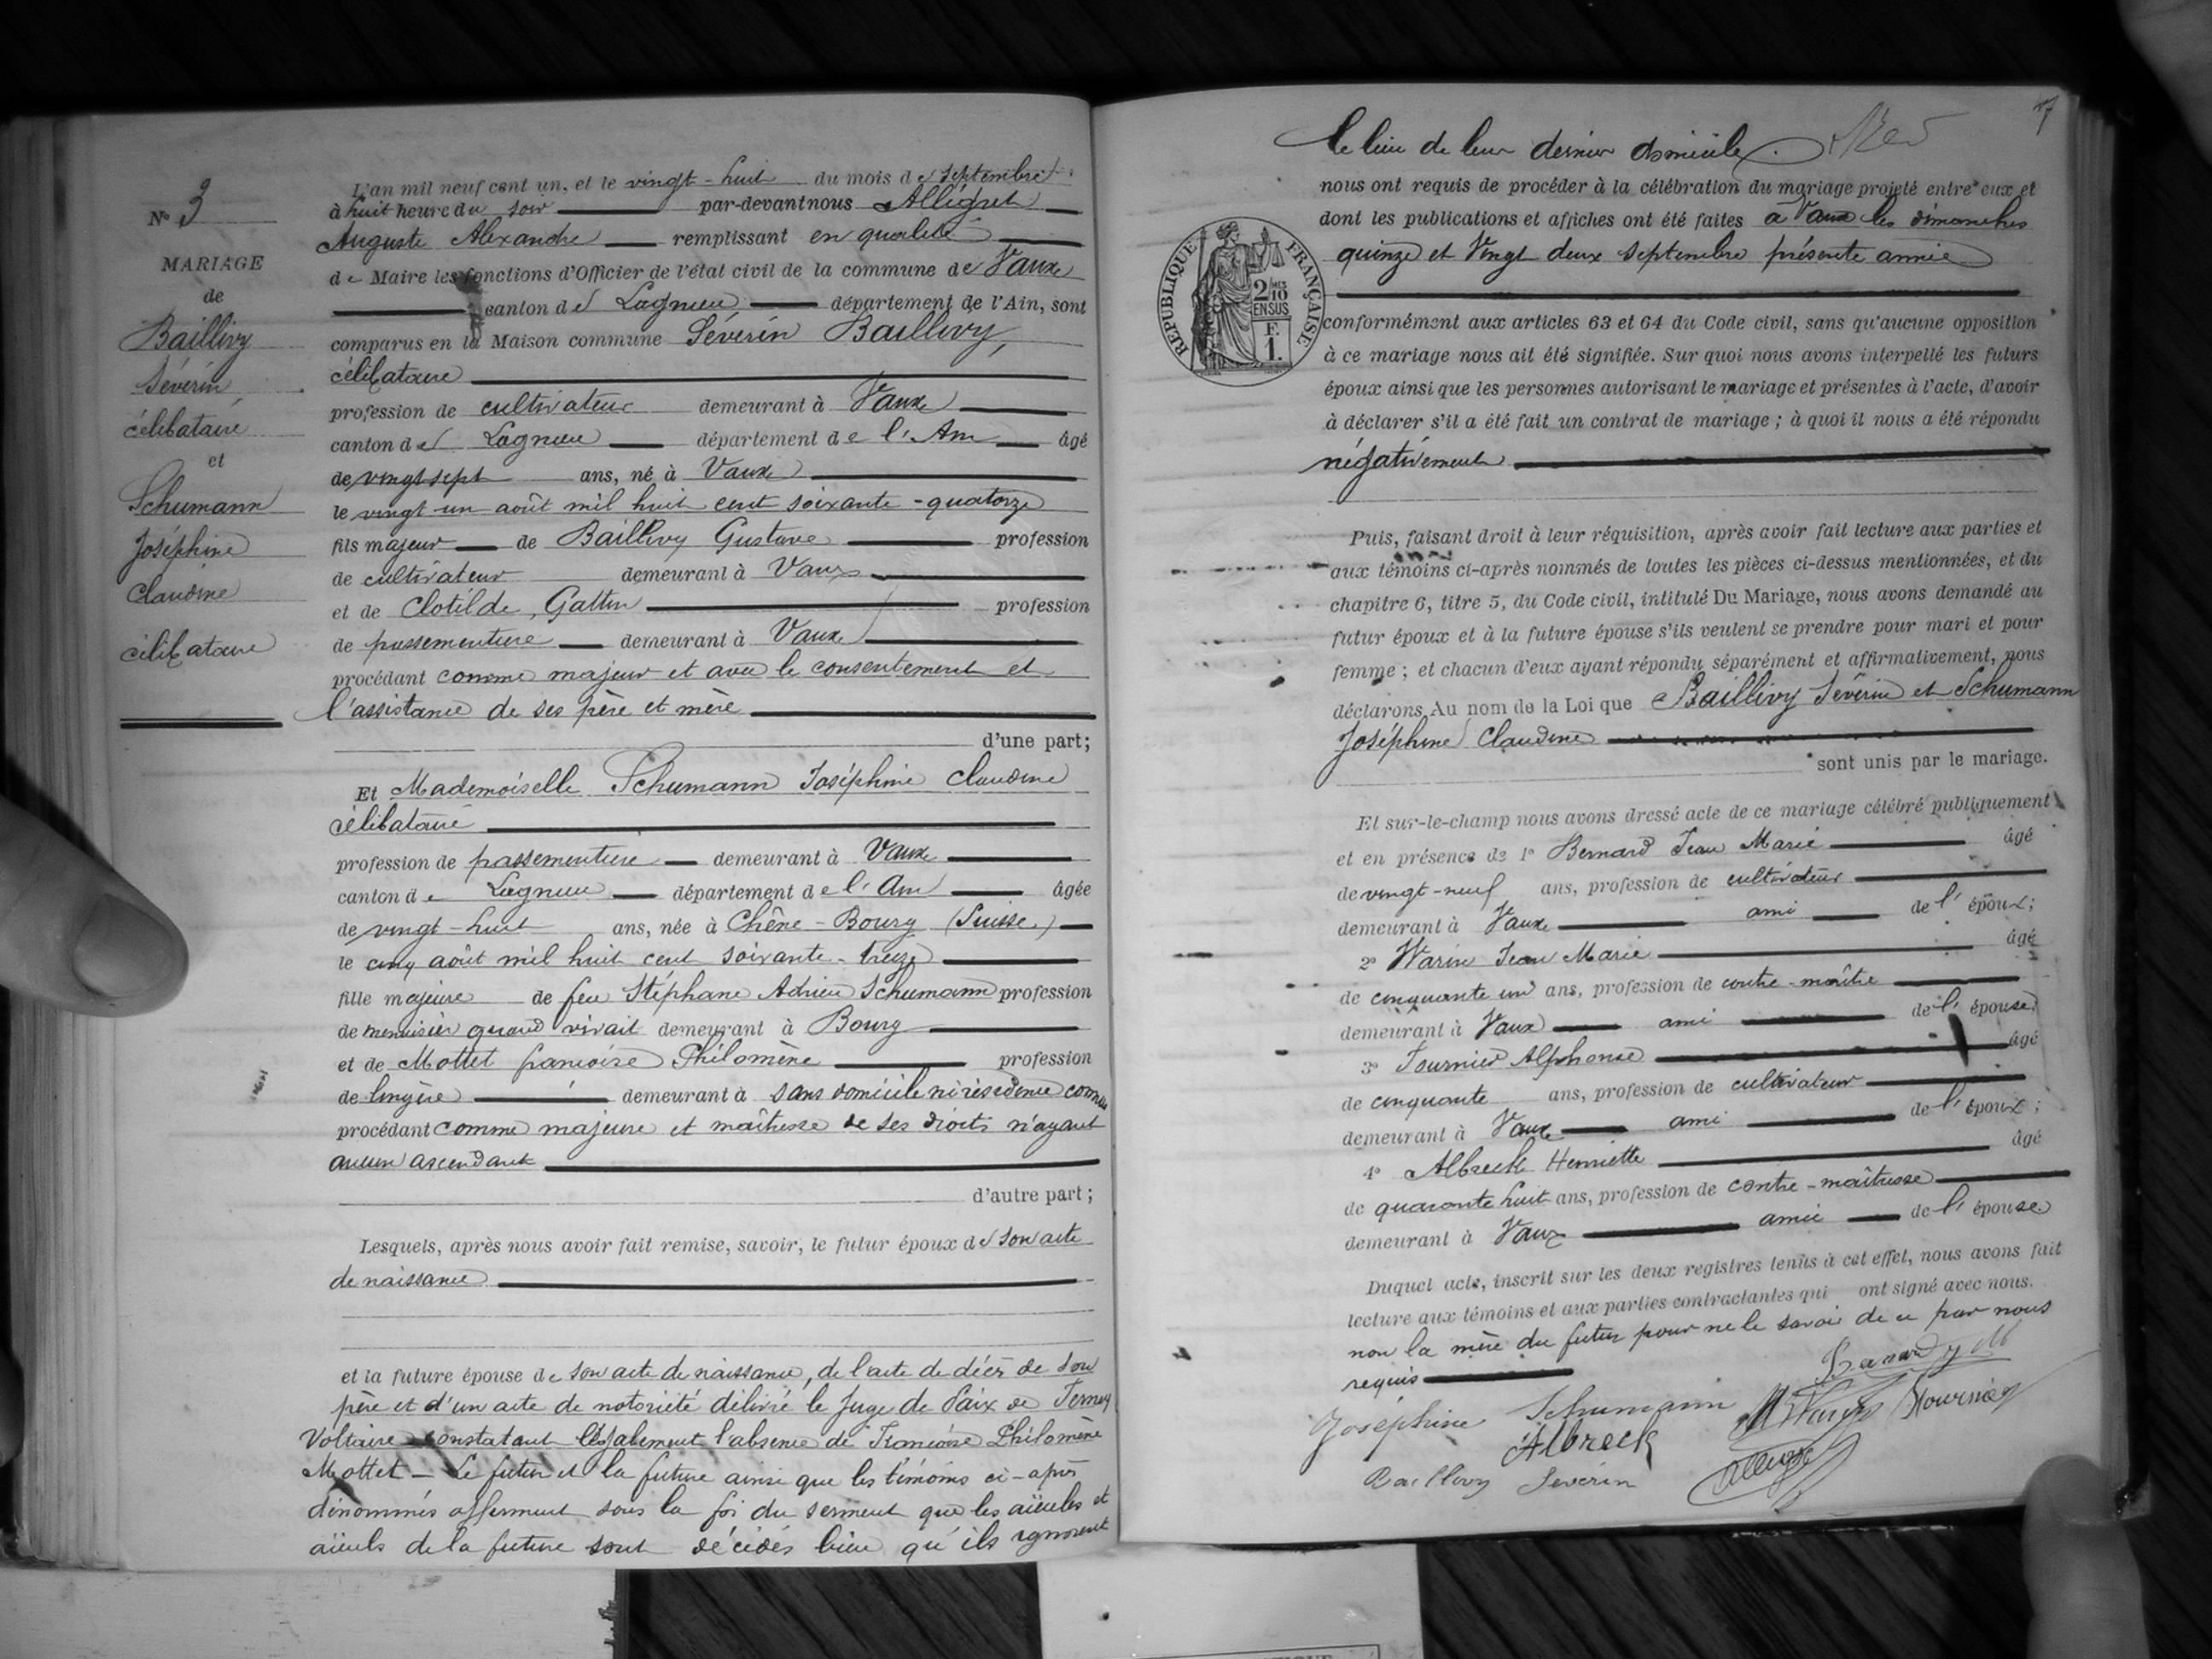 N° 3
MARIAGE
de
Baillivy
Séverin,
célibataire
et
Schumann
Joséphine
Claudine
célibataire
L'an mil neuf cent un, et le vingt-huit du mois de septembre
à huit heure du soir par-devant nous Allégret
Auguste Alexandre remplissant en qualité
de Maire les fonctions d'Officier de l'état civil de la commune de Vaux
canton de Lagnieu département de l'Ain, sont
comparus en la Maison commune Séverin Baillivy,
célibataire
profession de cultivateur demeurant à Vaux
canton de Lagnieu département de l'Ain âgé
de vingt sept ans, né à Vaux
le vingt-un août mil huit cent soixante-quatorze
fils majeur de Baillivy Gustave profession
de cultivateur demeurant à Vaux
et de Clotilde, Gattin profession
de passementière demeurant à Vaux
procédant comme majeur et avec le consentement et
l'assistance de ses père et mère
d'une part;
Et Mademoiselle Schumann Joséphine Claudine
célibataire
profession de passementière demeurant à Vaux
canton de Lagnieu département de l'Ain âgée
de vingt-huit ans, née à Chêne-Bourg (Suisse)
le cinq août mil huit cent soixante-treize
fille majeure de feu Stéphane Adrien Schumann profession
de menuisier quand vivait demeurant à Bourg
et de Mottet françoise Philomène profession
de lingère demeurant à sans domicile ni résidence connus
procédant comme majeure et maîtresse de ses droits n'ayant
aucun ascendant
d'autre part;
Lesquels, après nous avoir fait remise, savoir, le futur époux de son acte
de naissance
et la future épouse de son acte de naissance, de l'acte de décès de son
père et d'un acte de notoriété délivré le Juge de Paix de Ferney
Voltaire constatant légalement l'absence de Françoise Philomène
Mottet – Le futur et la future ainsi que les témoins ci-après
dénommés afferment sous la foi du serment que les aïeules et
aïeuls de la future sont décédés bien qu'ils ignorent
7
le lieu de leur dernier domicile.
nous ont requis de procéder à la célébration du mariage projeté entre eux et
dont les publications et affiches ont été faites à Vaux les dimanches
quinze et Vingt deux septembre présente année
RÉPUBLIQUE FRANÇAISE
2/10
MES
EN SUS
F.
1.
conformément aux articles 63 et 64 du Code civil, sans qu'aucune opposition
à ce mariage nous ait été signifiée. Sur quoi nous avons interpellé les futurs
époux ainsi que les personnes autorisant le mariage et présentes à l'acte, d'avoir
à déclarer s'il a été fait un contrat de mariage ; à quoi il nous a été répondu
négativement
Puis, faisant droit à leur réquisition, après avoir fait lecture aux parties et
aux témoins ci-après nommés de toutes les pièces ci-dessus mentionnées, et du
chapitre 6, titre 5, du Code civil, intitulé Du Mariage, nous avons demandé au
futur époux et à la future épouse s'ils veulent se prendre pour mari et pour
femme ; et chacun d'eux ayant répondu séparément et affirmativement, nous
déclarons Au nom de la Loi que Baillivy Séverin et Schumann
Joséphine Claudine
sont unis par le mariage.
Et sur-le-champ nous avons dressé acte de ce mariage célébré publiquement
et en présence de 1° Bernard Jean Marie âgé
de vingt-neuf ans, profession de cultivateur
demeurant à Vaux ami de l'époux;
2° Warin Jean Marie âgé
de cinquante un ans, profession de contre-maître
demeurant à Vaux ami de l'épouse
3° Tournier Alphonse âgé
de cinquante ans, profession de cultivateur
demeurant à Vaux ami de l'époux;
4° Albreck Henriette âgé
de quarante huit ans, profession de contre-maîtresse
demeurant à Vaux amie de l'épouse
Duquel acte, inscrit sur les deux registres tenus à cet effet, nous avons fait
lecture aux témoins et aux parties contractantes qui ont signé avec nous.
non la mère du futur pour ne le savoir de ce par nous
requis
Joséphine Schumann
Albreck
Baillivy Séverin